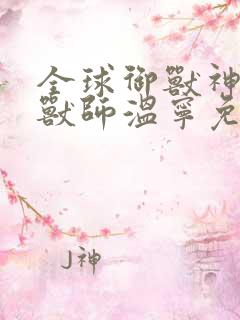 全球御獸神
獸師溫寧免
J神